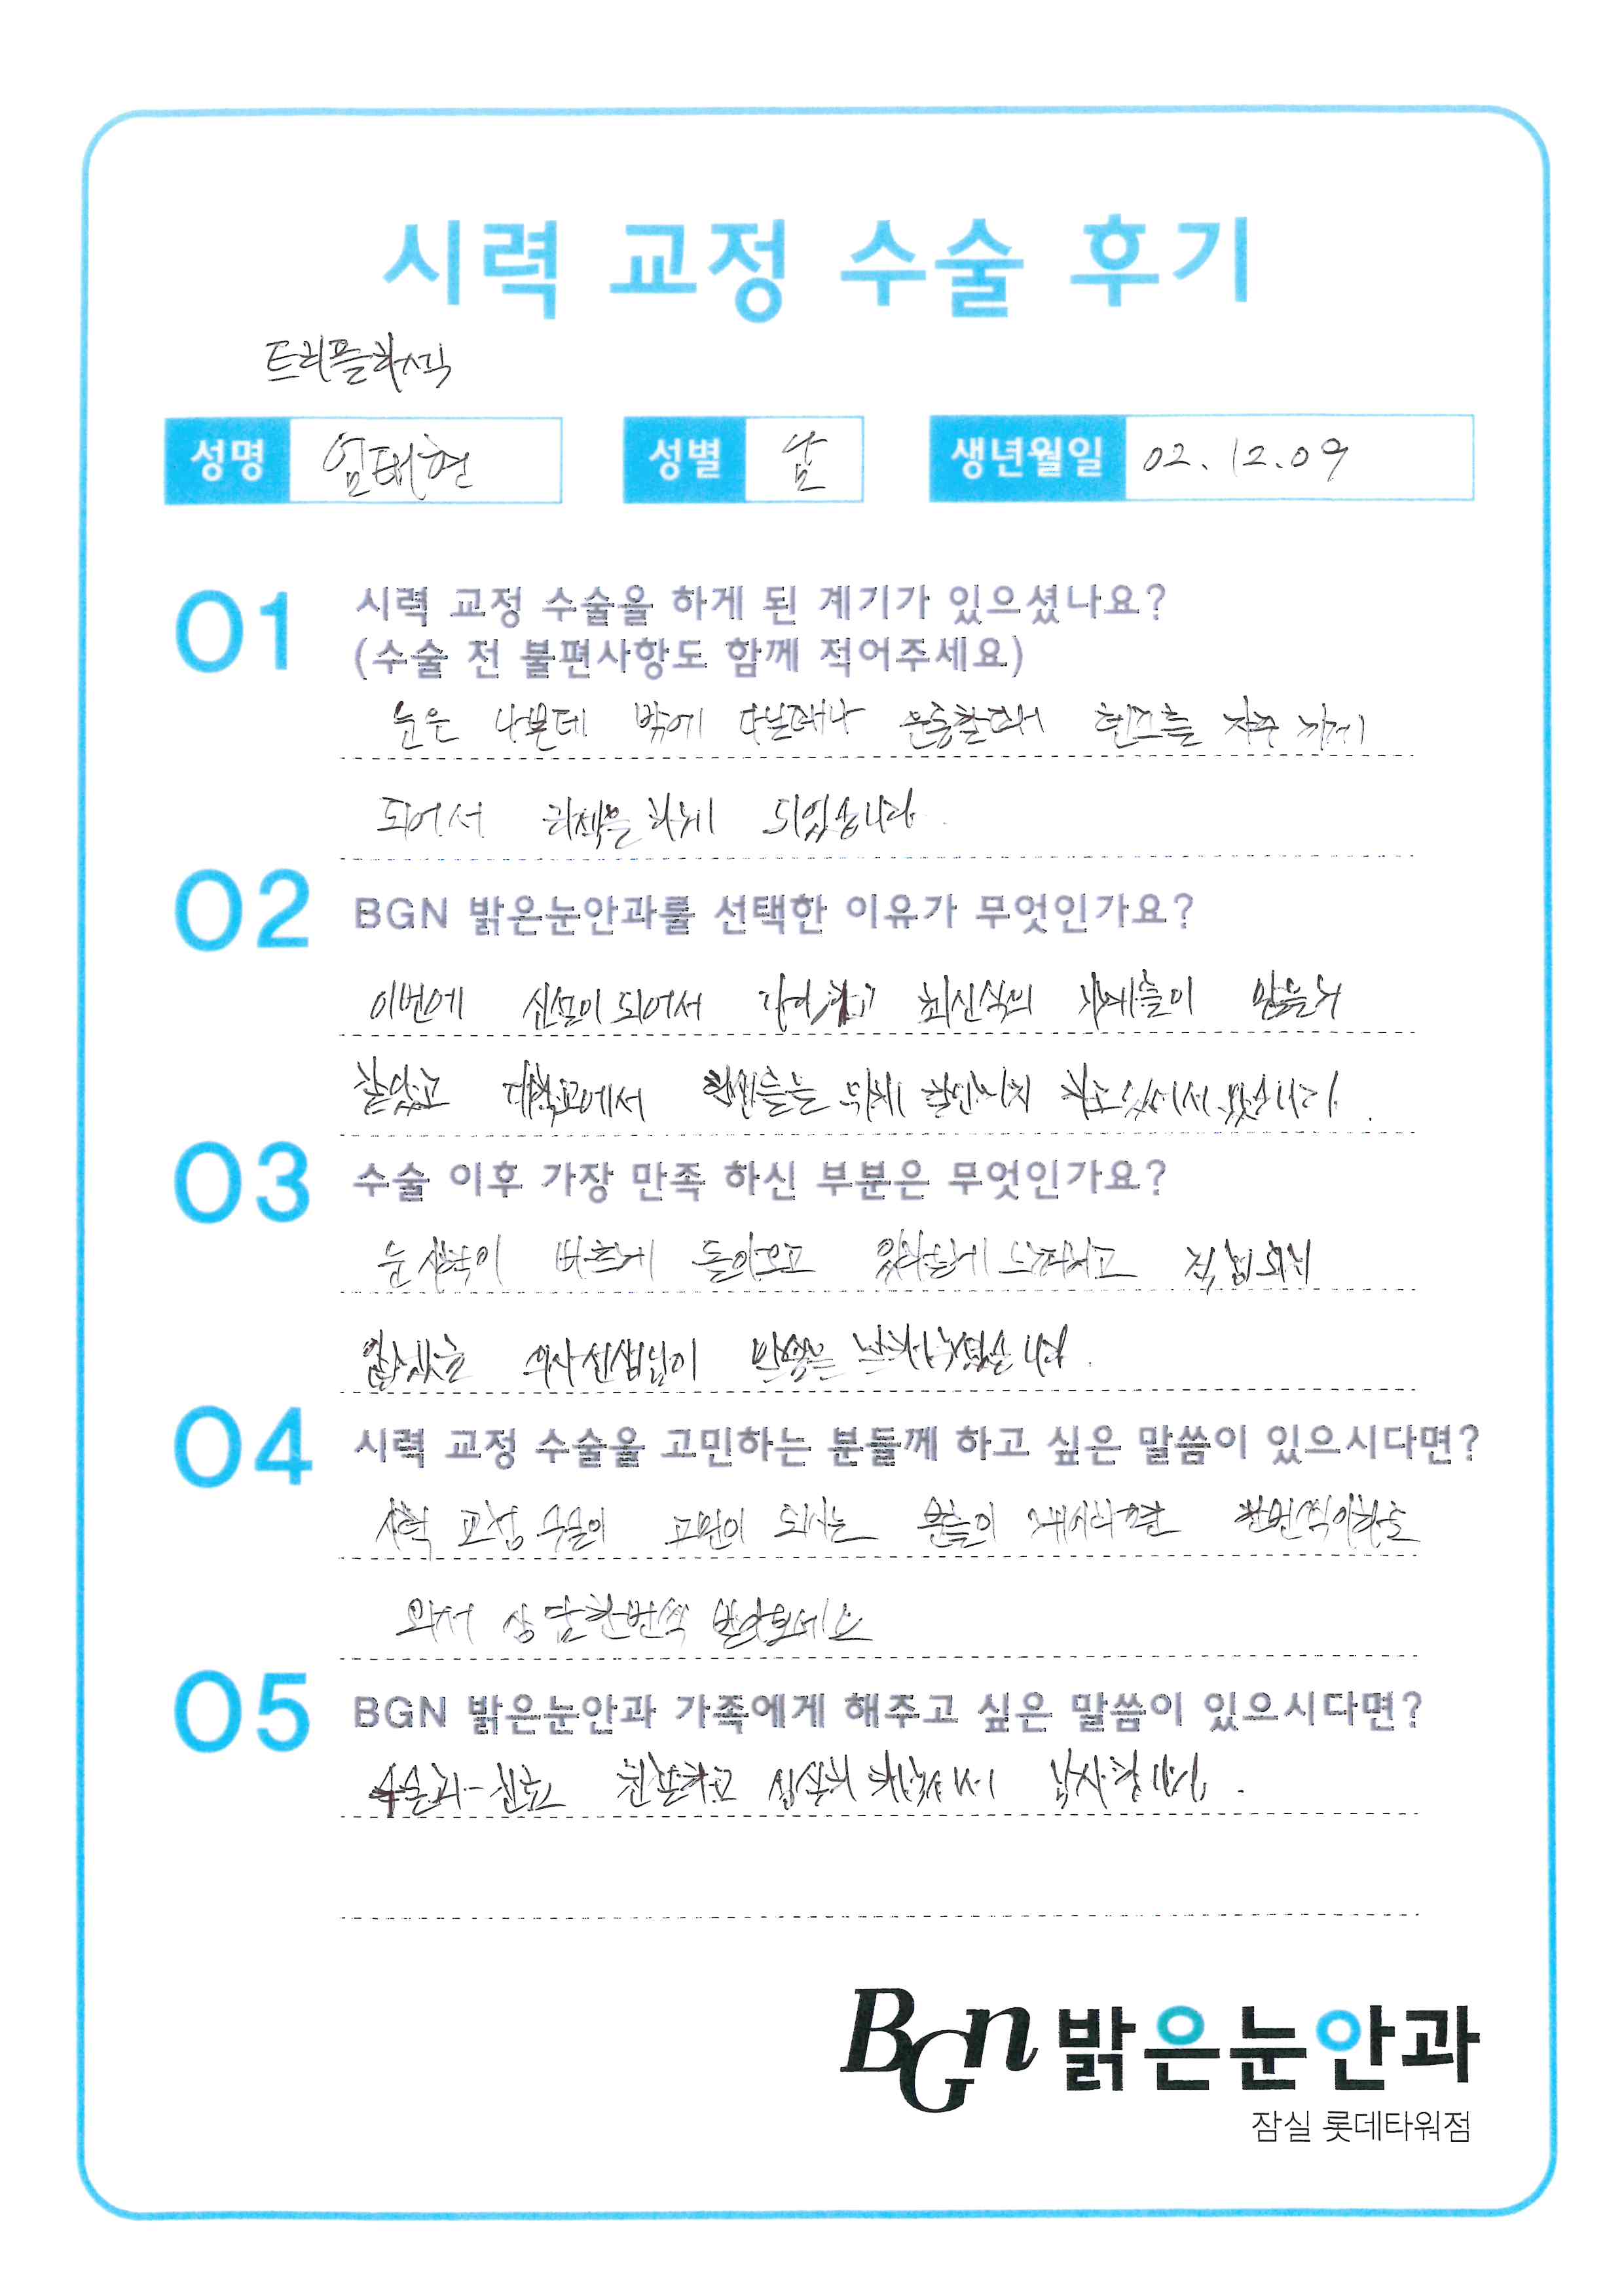 시력 교정 수술 후기
트리플라식
성명 엄태현 성별 남 생년월일 02.12.09
01 시력 교정 수술을 하게 된 계기가 있으셨나요?
(수술 전 불편사항도 함께 적어주세요)
눈은 나쁜데 밖에 다닐때나 운동할때 렌즈를 자주 끼게
되어서 라섹을 하게 되었습니다.
02 BGN 밝은눈안과를 선택한 이유가 무엇인가요?
이번에 신설이 되어서 최신식의 기계들이
대학교에서 학생들을 위해 할인까지 하고 있어서
03 수술 이후 가장 만족 하신 부분은 무엇인가요?
눈 시력이 빠르게 돌아오고 직접
의사선생님이
04 시력 교정 수술을 고민하는 분들께 하고 싶은 말씀이 있으시다면?
시력 교정 수술이 고민이 되시는 분들이
와서 상담한번씩 받아보세요
05 BGN 밝은눈안과 가족에게 해주고 싶은 말씀이 있으시다면?
친절하고 감사합니다.
BGN 밝은눈안과
잠실 롯데타워점